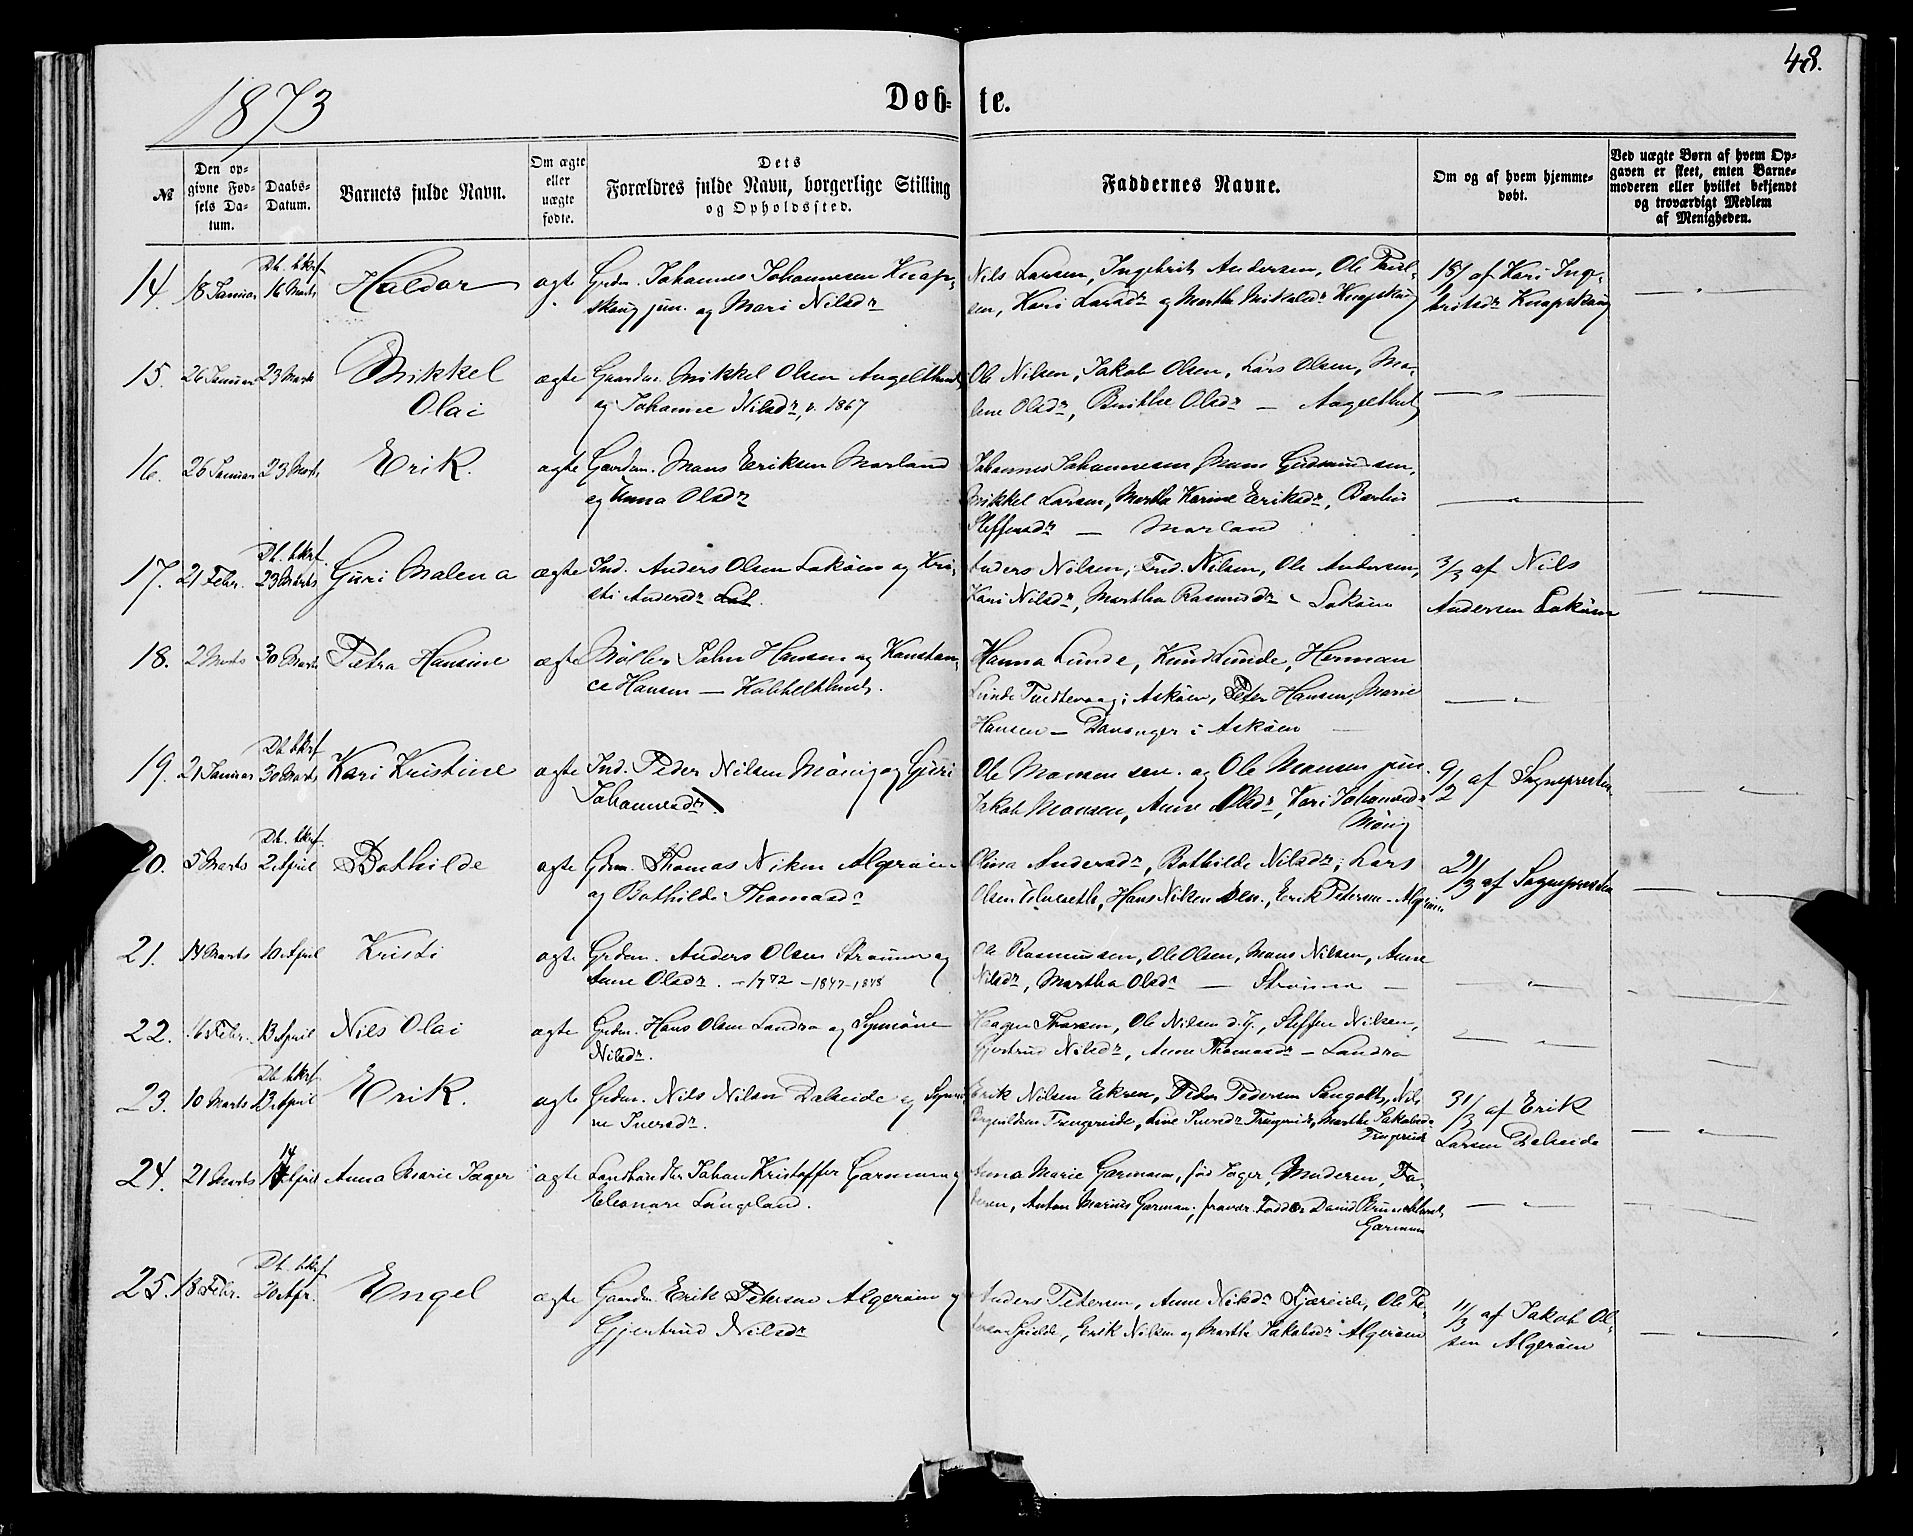 48.
1873
Døbte.
№
Den opgivne Fødsels Datum.
Daabs-Datum.
Barnets fulde Navn.
Om ægte eller uægte fødte.
Dets Forældres fulde Navn, borgerlige Stilling og Opholdssted.
Faddernes Navne.
Om og af hvem hjemmedøbt.
Ved uægte Børn af hvem Opgaven er skeet, enten Barnemoderen eller hvilket bekjendt og troværdigt Medlem af Menigheden.
14. 18 Januar 16 Marts Haldor ægte Grdm. Johannes Johannesen Knap-
skaug jun. og Mari Nilsdr
Nils Larsen, Ingebrit Andersen, Ole Paul-
sen, Kari Larsdr og Martha Mikkelsdr Knapskaug
18/1 af Kari Inge-
britsdr Knapskaug
15. 26 Januar 23 Marts Mikkel
Olai
ægte Gaardm. Mikkel Olsen Angeltveit
og Johanne Nilsdr, v. 1867
Ole Nilsen, Jakob Olsen, Lars Olsen, Ma-
lene Olsdr, Brithe Olsdr — Angeltveit
16. 26 Januar 23 Marts Erik. ægte Gaardm. Mons Eriksen Morland
og Anna Olsdr
Johannes Johannesen, Mons Gudmundsen,
Mikkel Larsen, Martha Karine Eriksdr,
Steffensdr — Morland
17. 21 Febr. 23 Marts Guri Malena ægte Ind. Anders Olsen Lokøen og Kri-
sti Andersdr
Anders Nilsen, Nilsen, Ole Andersen,
Kari Nilsdr, Martha Rasmusdr — Lokøen
3/3 af Nils
Andersen Lokøen
18. 2 Marts 30 Marts Petra Hansine ægte Møller John Hansen og Konstan-
ce Hansen — Kobbeltveit.
Hanna Lunde, Knud Lunde, Herman
Lunde i Askøen, Peter Hansen, Marie
Hansen — Davanger i Askøen
19. 21 Januar 30 Marts Kari Kristine ægte Ind. Peder Nilsen Møvig og Guri
Johannesdr.
Ole Monsen sen. og Ole Monsen jun.
Jakob Monsen, Anne Olsdr, Kari Johannesdr
Møvig
9/2 af Sognepresten
20. 5 Marts 2 April Bothilde ægte Grdm. Thomas Nilsen Algerøen
og Bothilde Thomasdr
Olina Andersdr, Bothilde Nilsdr, Lars
Olsen, Hans Nilsen sen., Erik Petersen — Algerøen
21/3 af Sognepresten
21. 14 Marts 10 April Kristi ægte Grdm. Anders Olsen Straume og
Anne Olsdr. — 1872 — 1847-1848
Ole Rasmussen, Ole Olsen, Mons Nilsen, Anne
Nilsdr, Martha Olsdr — Straume —
22. 6 Febr. 13 April Nils Olai ægte Grdm. Hans Olsen Landro og Synnøve
Nilsdr.
Haagen Thorsen, Ole Nilsen d.y., Steffen Nilsen,
Gjertrud Nilsdr, Anne Thomasdr — Landro
23. 10 Marts 13 April Erik. ægte Grdm. Nils Nilsen Daleide og Synnø-
ve Iversdr.
Erik Nilsen Ekren, Peder Pedersen Sangolt, Nils
31/3 af Erik
Larsen Daleide
24. 21 Marts 14 April Anna Marie Jæger ægte Landhandler Johan Kristoffer Garmann og
Eleonore Langeland.
Anna Marie Garmann, fød Jæger, Moderen, Fa-
deren, Anton Marius Garman, fravær. Fadder David
Garmann
25. 18 Febr. 20 Apr. Engel ægte Gaardm. Erik Petersen Algerøen og
Gjertrud Nilsdr
Anders Petersen, Anne Nilsdr, Ole Pe-
tersen, Erik Nilsen og Marthe Jakobsdr Algerøen
11/3 af Jakob Ol-
sen Algerøen